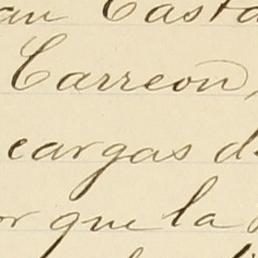 an Casta
Carreon,
cargas d
or que la